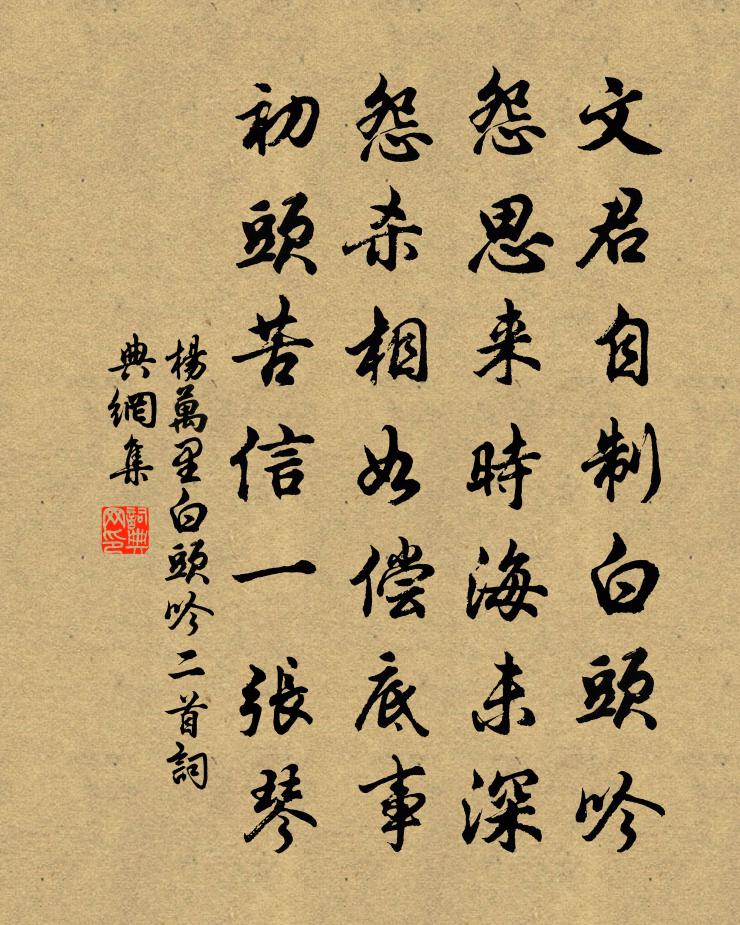 文君自制白頭吟
怨思来時海未深
怨杀相如偿底事
初頭苦信一張琴
楊萬里白頭吟二首詞
典網集
詞典网印